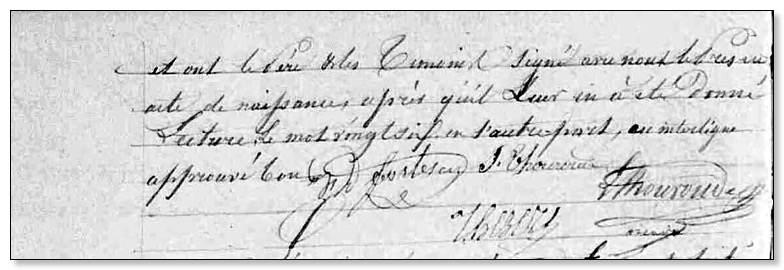 et ont le Père & les Témoins signé avec nous le Présen
acte de naissance, après qu'il Leur en à été Donné
Lecture, le mot vingt six en l'autre part, en interligne
approuvé bon
maire